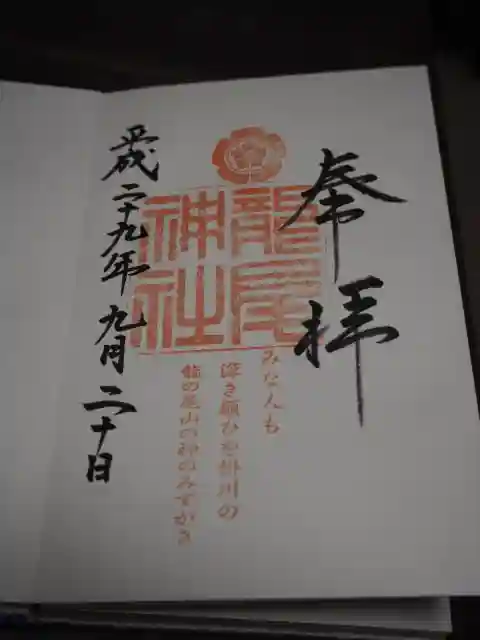 奉拝
龍尾
神社
みな人も
深き願ひを掛川の
龍の尾山の神のみずがき
平成二十九年九月二十日